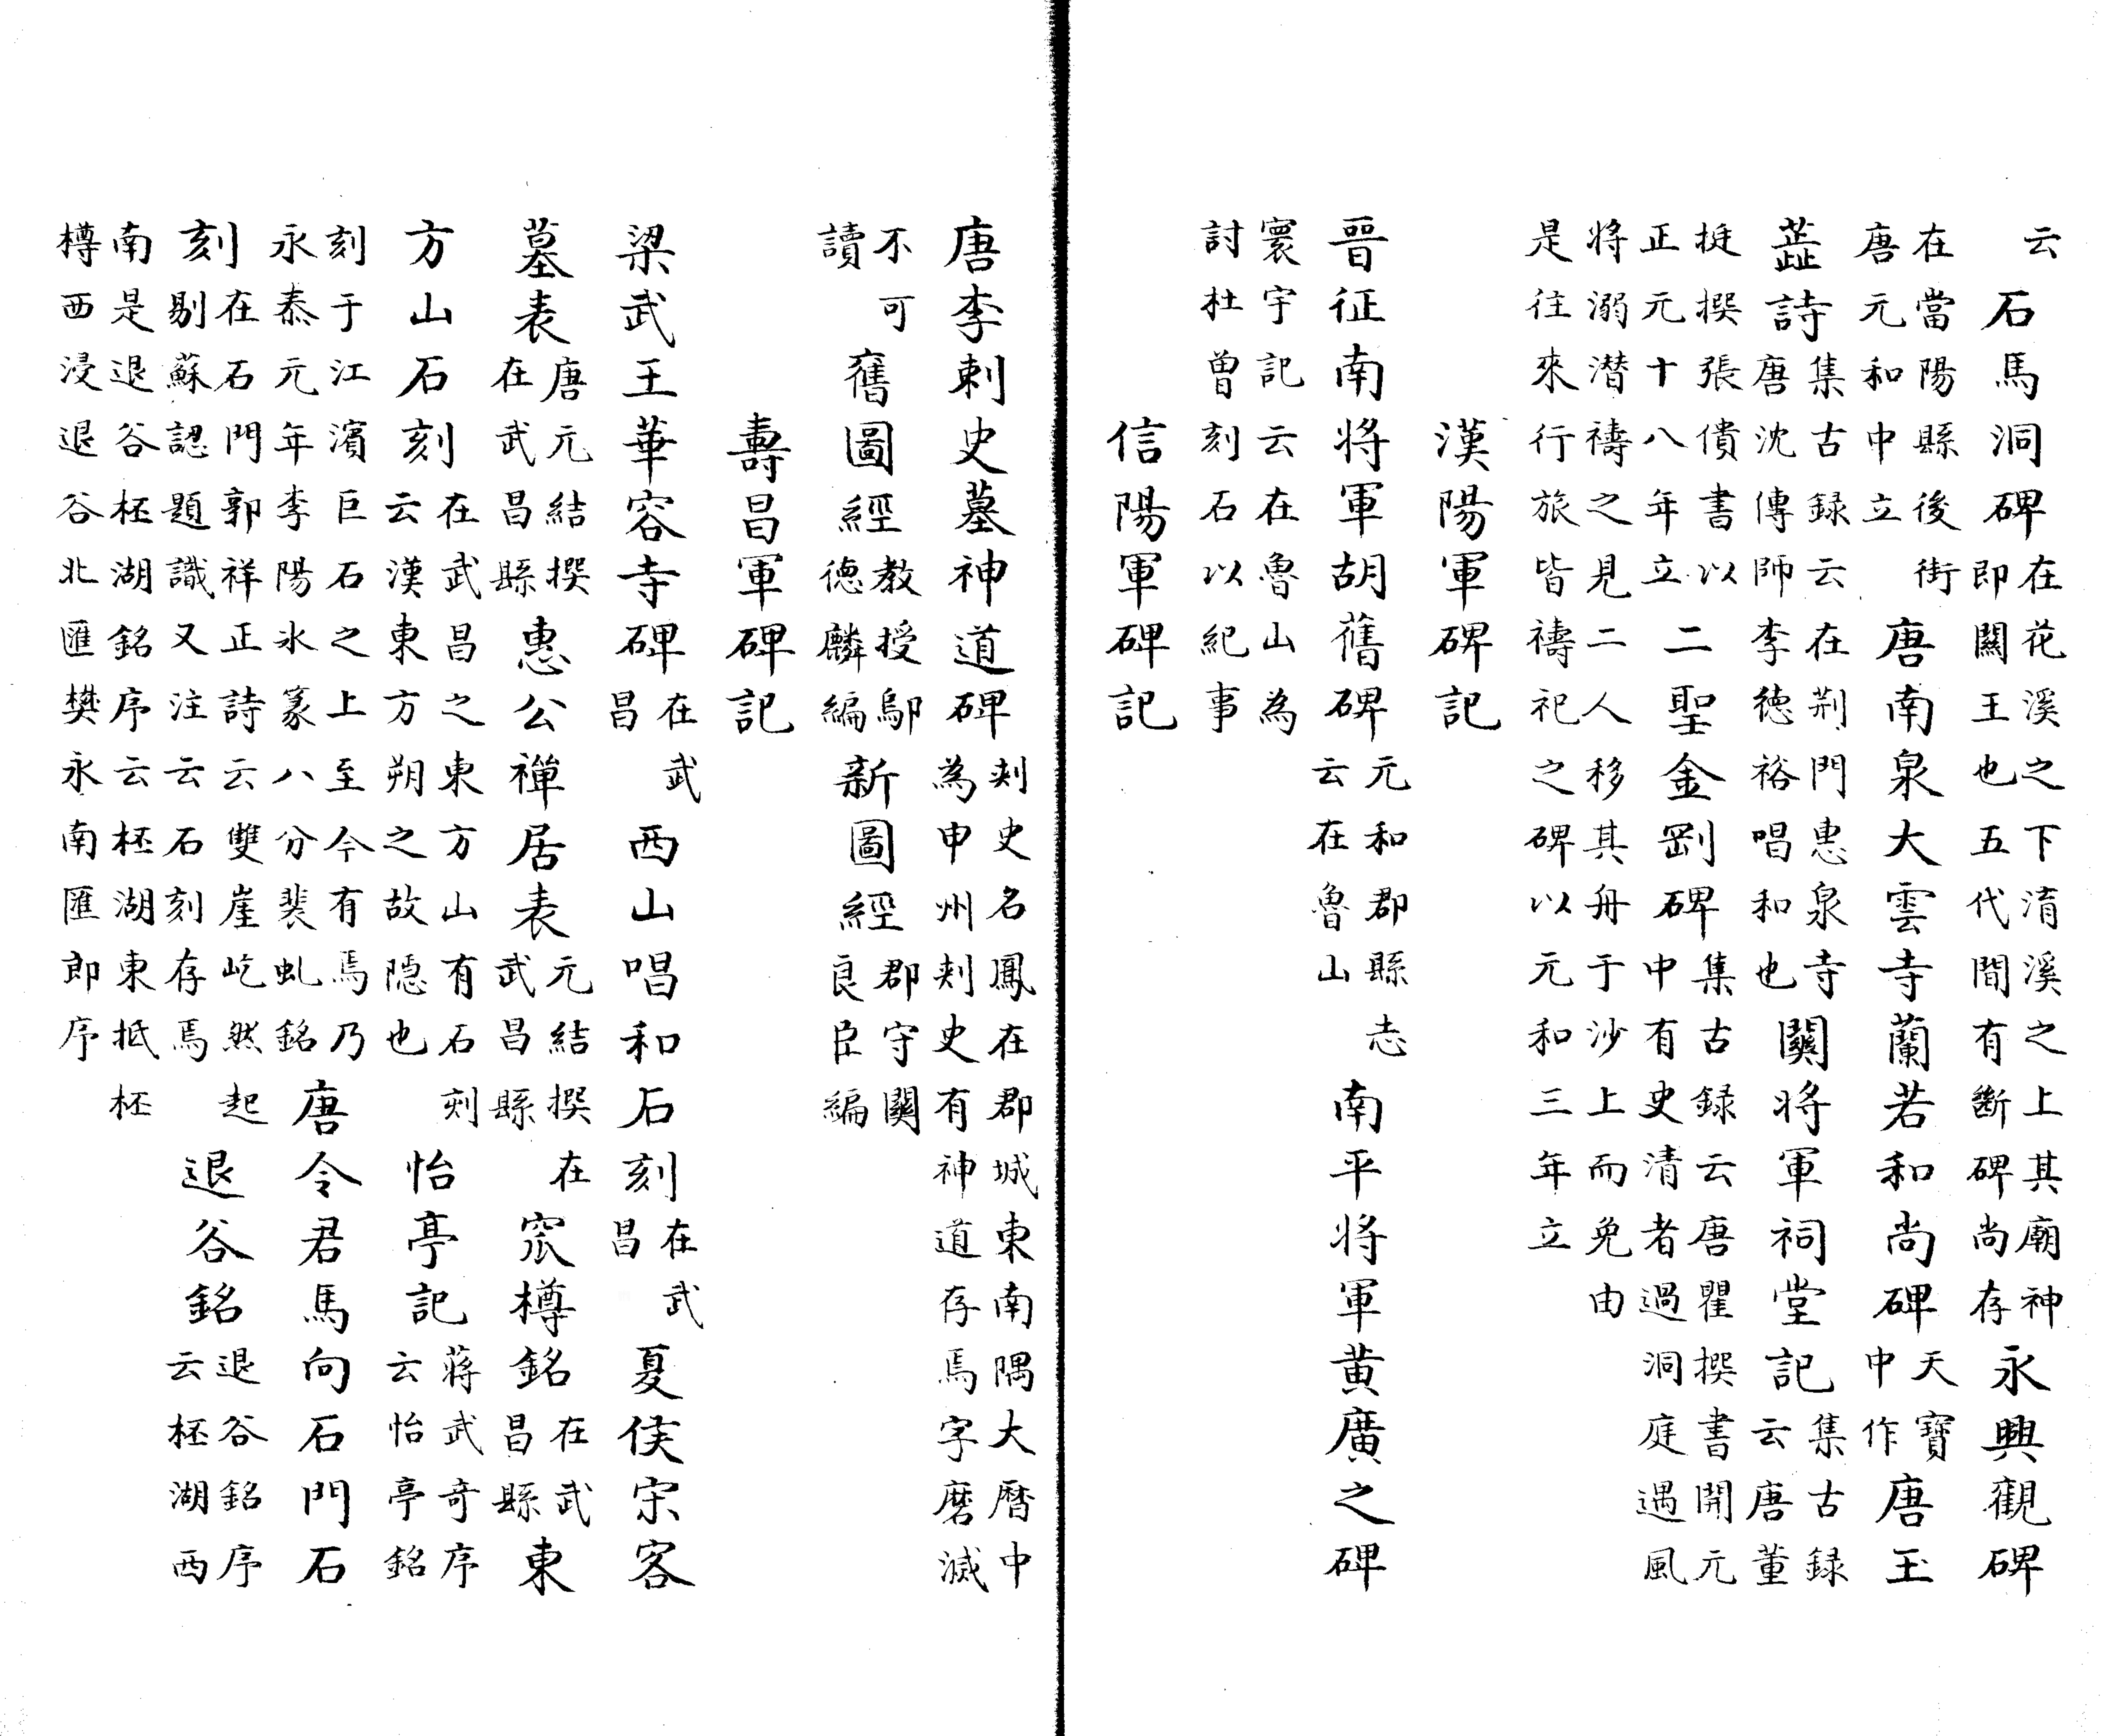 云石馬洞碑在花溪之下淯溪之上其廟神即關王也五代間有斷碑尚存永興觀碑
在當陽縣後街唐元和中立唐南泉大雲寺蘭若和尚碑天寶中作唐玉
蘂詩集古録云在荆門惠泉寺唐沈傳師李徳裕唱和也關将軍祠堂記集古録云唐董
挺撰張僨書以正元十八年立二聖金剛碑集古録云唐瞿撰書開元中有史清者過洞庭遇風
将溺潜禱之見二人移其舟于沙上而免由是往來行旅皆禱祀之碑以元和三年立
漢陽軍碑記
晉征南将軍胡舊碑元和郡縣志云在魯山南平将軍黄廣之碑
寰宇記云在魯山為討杜曾刻石以紀事
信陽軍碑記
唐李刺史墓神道碑刺史名鳳在郡城東南隅大曆中為申州刺史有神道存焉字磨滅
不可讀舊圖經教授鄔徳麟編新圖經郡守關良臣編
壽昌軍碑記
梁武王華容寺碑在武昌西山唱和石刻在武昌夏侯宋客
墓表唐元結撰在武昌縣惠公禅居表元結撰在武昌縣窊樽銘在武昌縣東
方山石刻在武昌之東方山有石刻云漢東方朔之故隠也怡亭記蔣武奇序云怡亭銘
刻于江濱巨石之上至今有焉乃永泰元年李陽氷篆八分裴虬銘唐令君馬向石門石
刻在石門郭祥正詩云雙崖屹然起剔蘇認題識又注云石刻存焉退谷銘退谷銘序云柸湖西
南是退谷柸湖銘序云柸湖東抵柸樽西浸退谷北匯樊永南匯郎序